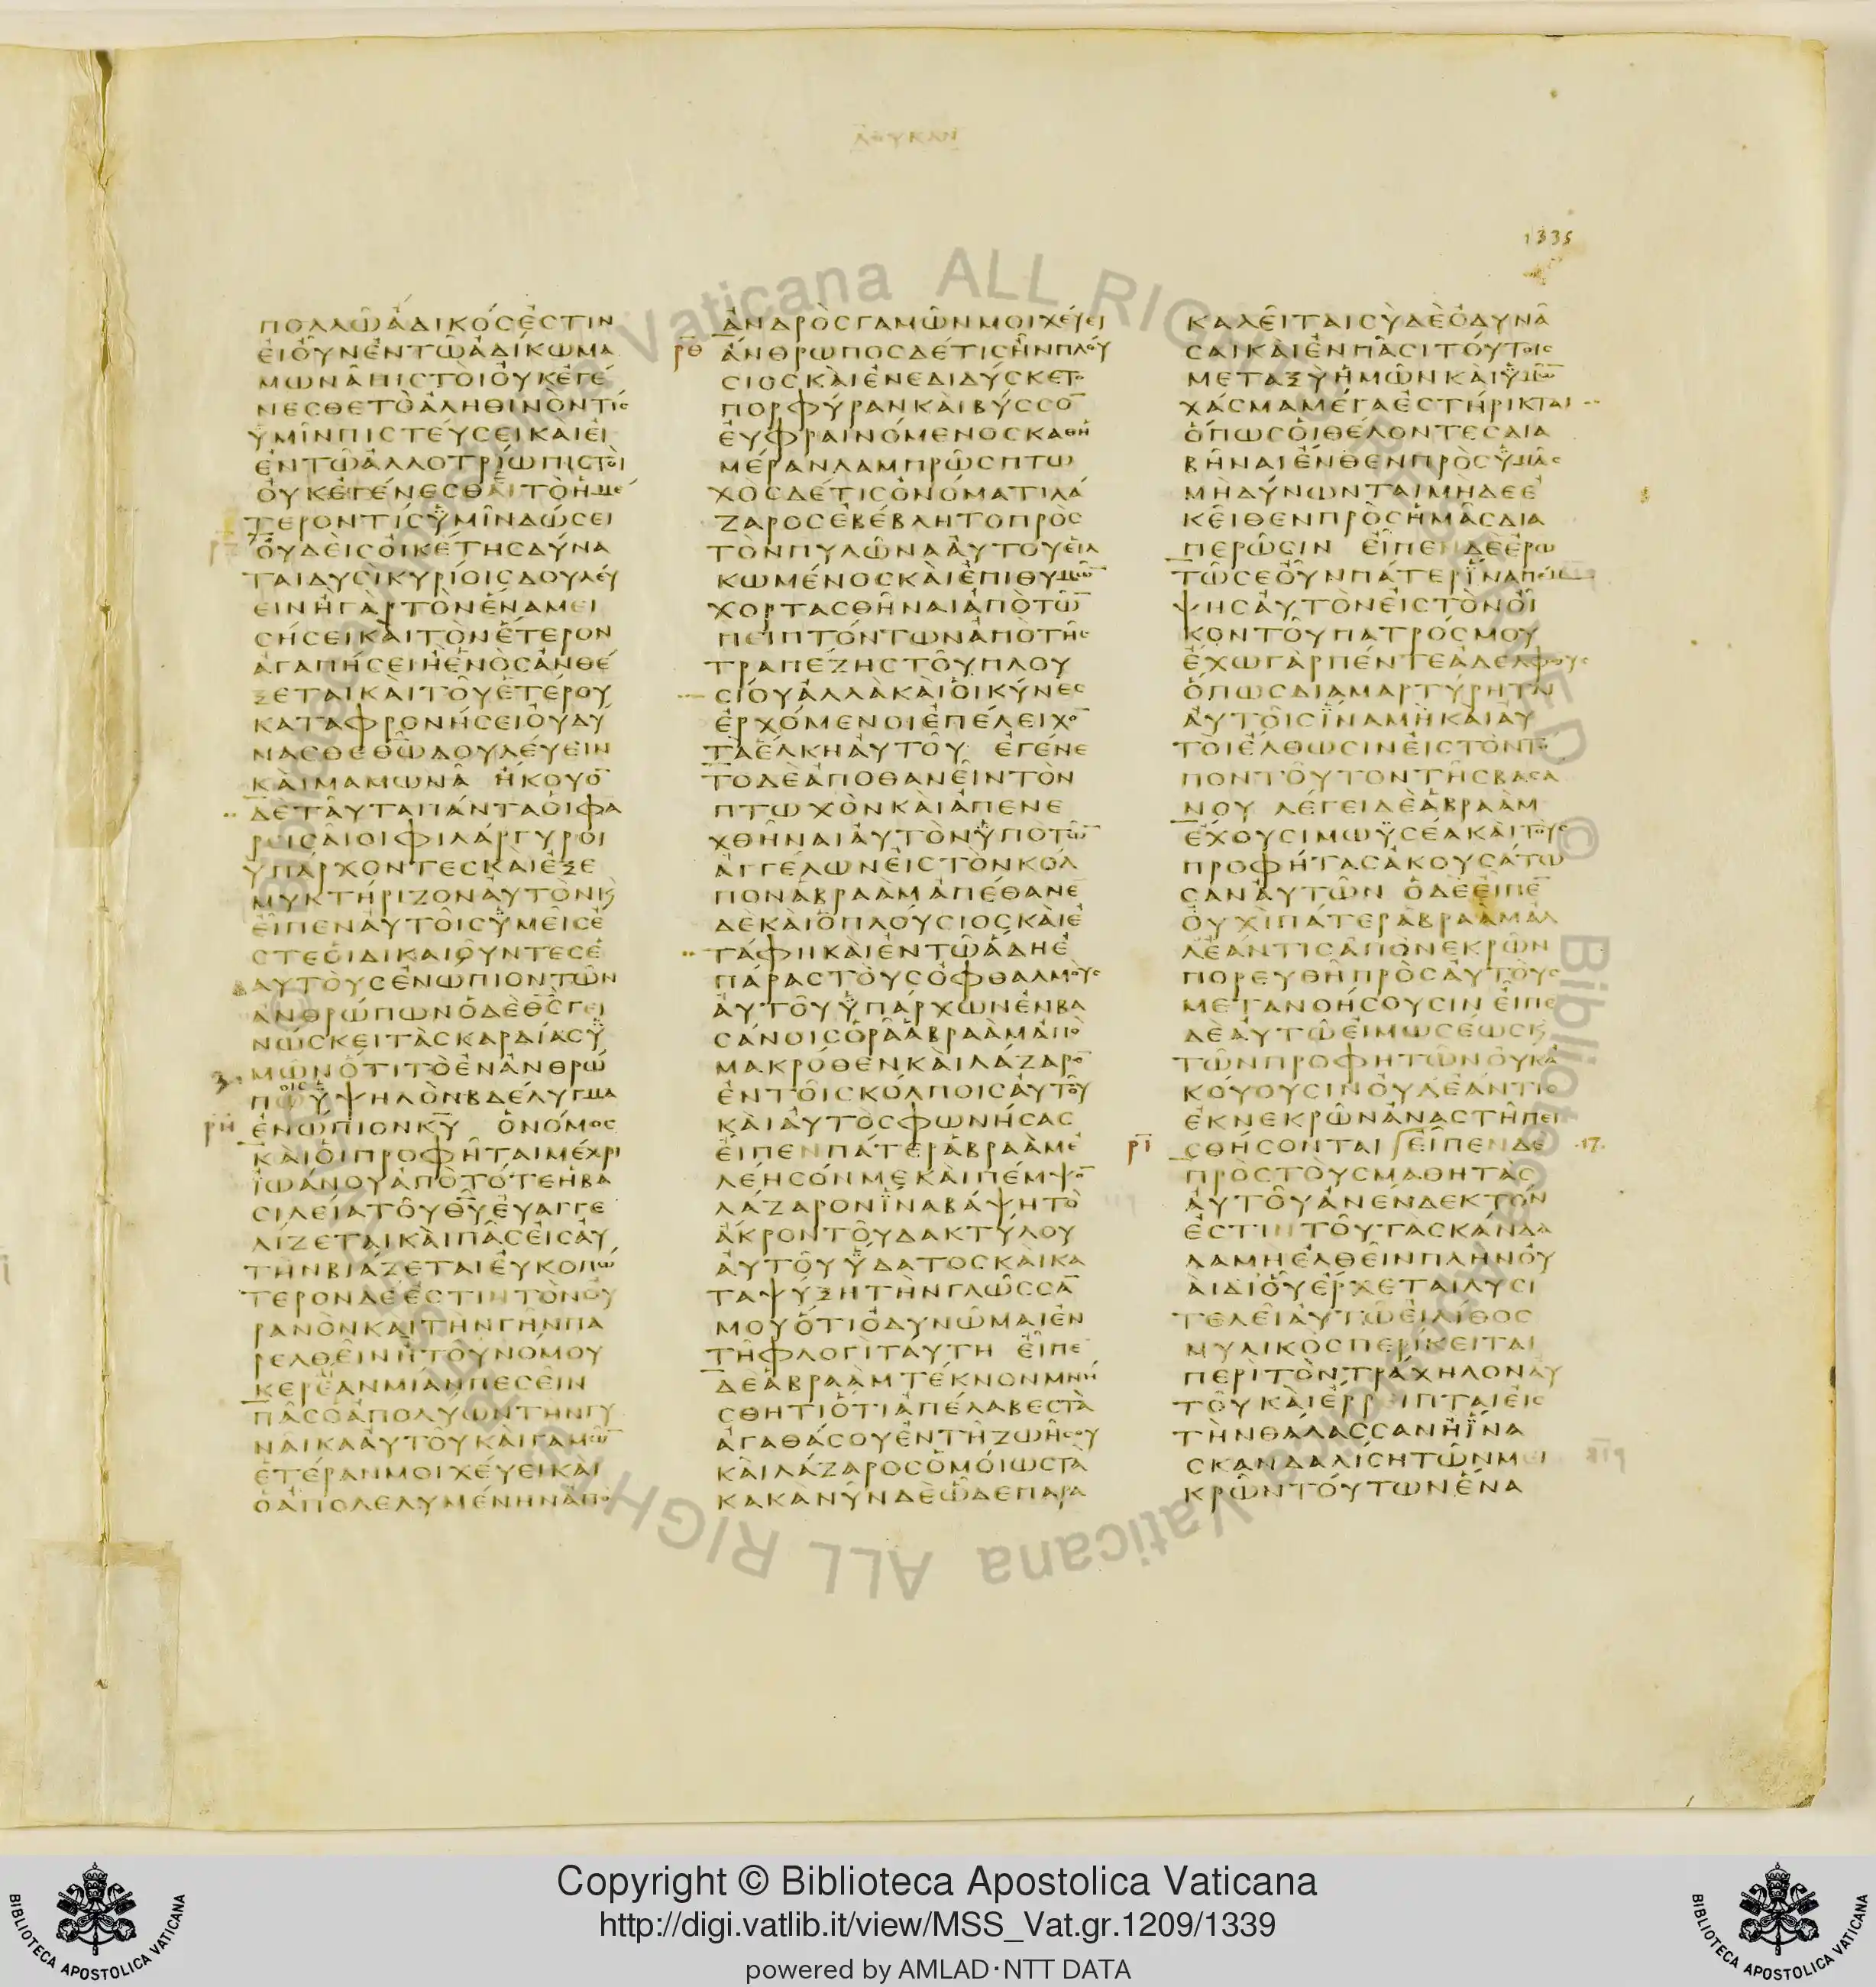 ΛΟΥΚΑΝ
1335
ΠΟΛΛΩ ΑΔΙΚΟΣ ΕΣΤΙΝ
ΕΙ ΟΥΝ ΕΝ ΤΩ ΑΔΙΚΩ ΜΑ
ΜΩΝΑ ΠΙΣΤΟΙ ΟΥΚ ΕΓΕ
ΝΕΣΘΕ ΤΟ ΑΛΗΘΙΝΟΝ ΤΙΣ
ΥΜΙΝ ΠΙΣΤΕΥΣΕΙ ΚΑΙ ΕΙ
ΕΝ ΤΩ ΑΛΛΟΤΡΙΩ ΠΙΣΤΟΙ
ΟΥΚ ΕΓΕΝΕΣΘΑΙ ΤΟ ΗΜΕ
ΤΕΡΟΝ ΤΙΣ ΥΜΙΝ ΔΩΣΕΙ
ΟΥΔΕΙΣ ΟΙΚΕΤΗΣ ΔΥΝΑ
ΤΑΙ ΔΥΣΙ ΚΥΡΙΟΙΣ ΔΟΥΛΕΥ
ΕΙΝ Η ΓΑΡ ΤΟΝ ΕΝΑ ΜΕΙ
ΣΗΣΕΙ ΚΑΙ ΤΟΝ ΕΤΕΡΟΝ
ΑΓΑΠΗΣΕΙ Η ΕΝΟΣ ΑΝΘΕ
ΞΕΤΑΙ ΚΑΙ ΤΟΥ ΕΤΕΡΟΥ
ΚΑΤΑΦΡΟΝΗΣΕΙ ΟΥ ΔΥ
ΝΑΣΘΕ ΘΩ ΔΟΥΛΕΥΕΙΝ
ΚΑΙ ΜΑΜΩΝΑ ΗΚΟΥΟ̅
ΔΕ ΤΑΥΤΑ ΠΑΝΤΑ ΟΙ ΦΑ
ΡΕΙΣΑΙΟΙ ΦΙΛΑΡΓΥΡΟΙ
ΥΠΑΡΧΟΝΤΕΣ ΚΑΙ ΕΞΕ
ΜΥΚΤΗΡΙΖΟΝ ΑΥΤΟΝ Κ
ΕΙΠΕΝ ΑΥΤΟΙΣ ΥΜΕΙΣ Ε
ΣΤΕ ΟΙ ΔΙΚΑΙΟΥΝΤΕΣ Ε
ΑΥΤΟΥΣ ΕΝΩΠΙΟΝ ΤΩΝ
ΑΝΘΡΩΠΩΝ Ο ΔΕ ΘΣ ΓΕΙ
ΝΩΣΚΕΙ ΤΑΣ ΚΑΡΔΙΑΣ Υ
ΜΩΝ ΟΤΙ ΤΟ ΕΝ ΑΝΘΡΩ
ΠΟΙΣ ΥΨΗΛΟΝ ΒΔΕΛΥΓΜΑ
ΡΗ ΕΝΩΠΙΟΝ ΚΥ Ο ΝΟΜΟΣ
ΚΑΙ ΟΙ ΠΡΟΦΗΤΑΙ ΜΕΧΡΙ
ΙΩΑΝΟΥ ΑΠΟ ΤΟΤΕ Η ΒΑ
ΣΙΛΕΙΑ ΤΟΥ ΘΥ ΕΥΑΓΓΕ
ΛΙΖΕΤΑΙ ΚΑΙ ΠΑΣ ΕΙΣ ΑΥ
ΤΗΝ ΒΙΑΖΕΤΑΙ ΕΥΚΟΠΩ
ΤΕΡΟΝ ΔΕ ΕΣΤΙΝ ΤΟΝ ΟΥ
ΡΑΝΟΝ ΚΑΙ ΤΗΝ ΓΗΝ ΠΑ
ΡΕΛΘΕΙΝ Η ΤΟΥ ΝΟΜΟΥ
ΚΕΡΕΑΝ ΜΙΑΝ ΠΕΣΕΙΝ
ΠΑΣ Ο ΑΠΟΛΥΩΝ ΤΗΝ ΓΥ
ΝΑΙΚΑ ΑΥΤΟΥ ΚΑΙ ΓΑΜΩ̅
ΕΤΕΡΑΝ ΜΟΙΧΕΥΕΙ ΚΑΙ
Ο ΑΠΟΛΕΛΥΜΕΝΗΝ ΑΠΟ
ΑΝΔΡΟΣ ΓΑΜΩΝ ΜΟΙΧΕΥΕΙ
ΡΘ ΑΝΘΡΩΠΟΣ ΔΕ ΤΙΣ ΗΝ ΠΛΟΥ
ΣΙΟΣ ΚΑΙ ΕΝΕΔΙΔΥΣΚΕΤΟ
ΠΟΡΦΥΡΑΝ ΚΑΙ ΒΥΣΣΟ̅
ΕΥΦΡΑΙΝΟΜΕΝΟΣ ΚΑΘΗ
ΜΕΡΑΝ ΛΑΜΠΡΩΣ ΠΤΩ
ΧΟΣ ΔΕ ΤΙΣ ΟΝΟΜΑΤΙ ΛΑ
ΖΑΡΟΣ ΕΒΕΒΛΗΤΟ ΠΡΟΣ
ΤΟΝ ΠΥΛΩΝΑ ΑΥΤΟΥ ΕΙΛ
ΚΩΜΕΝΟΣ ΚΑΙ ΕΠΙΘΥΜΩ̅
ΧΟΡΤΑΣΘΗΝΑΙ ΑΠΟ ΤΩ̅
ΠΕΙΠΤΟΝΤΩΝ ΑΠΟ ΤΗΣ
ΤΡΑΠΕΖΗΣ ΤΟΥ ΠΛΟΥ
ΣΙΟΥ ΑΛΛΑ ΚΑΙ ΟΙ ΚΥΝΕΣ
ΕΡΧΟΜΕΝΟΙ ΕΠΕΛΕΙΧΟ̅
ΤΑ ΕΛΚΗ ΑΥΤΟΥ ΕΓΕΝΕ
ΤΟ ΔΕ ΑΠΟΘΑΝΕΙΝ ΤΟΝ
ΠΤΩΧΟΝ ΚΑΙ ΑΠΕΝΕ
ΧΘΗΝΑΙ ΑΥΤΟΝ ΥΠΟ ΤΩ̅
ΑΓΓΕΛΩΝ ΕΙΣ ΤΟΝ ΚΟΛ
ΠΟΝ ΑΒΡΑΑΜ ΑΠΕΘΑΝΕ̅
ΔΕ ΚΑΙ Ο ΠΛΟΥΣΙΟΣ ΚΑΙ Ε
ΤΑΦΗ ΚΑΙ ΕΝ ΤΩ ΑΔΗ Ε
ΠΑΡΑΣ ΤΟΥΣ ΟΦΘΑΛΜΟΥΣ
ΑΥΤΟΥ ΥΠΑΡΧΩΝ ΕΝ ΒΑ
ΣΑΝΟΙΣ ΟΡΑ ΑΒΡΑΑΜ ΑΠΟ
ΜΑΚΡΟΘΕΝ ΚΑΙ ΛΑΖΑΡΟ̅
ΕΝ ΤΟΙΣ ΚΟΛΠΟΙΣ ΑΥΤΟΥ
ΚΑΙ ΑΥΤΟΣ ΦΩΝΗΣΑΣ
ΕΙΠΕΝ ΠΑΤΕΡ ΑΒΡΑΑΜ Ε
ΛΕΗΣΟΝ ΜΕ ΚΑΙ ΠΕΜΨΟ̅
ΛΑΖΑΡΟΝ ΙΝΑ ΒΑΨΗ ΤΟ
ΑΚΡΟΝ ΤΟΥ ΔΑΚΤΥΛΟΥ
ΑΥΤΟΥ ΥΔΑΤΟΣ ΚΑΙ ΚΑ
ΤΑΨΥΞΗ ΤΗΝ ΓΛΩΣΣΑ̅
ΜΟΥ ΟΤΙ ΟΔΥΝΩΜΑΙ ΕΝ
ΤΗ ΦΛΟΓΙ ΤΑΥΤΗ ΕΙΠΕ
ΔΕ ΑΒΡΑΑΜ ΤΕΚΝΟΝ ΜΝΗ
ΣΘΗΤΙ ΟΤΙ ΑΠΕΛΑΒΕΣ ΤΑ
ΑΓΑΘΑ ΣΟΥ ΕΝ ΤΗ ΖΩΗ ΣΟΥ
ΚΑΙ ΛΑΖΑΡΟΣ ΟΜΟΙΩΣ ΤΑ
ΚΑΚΑ ΝΥΝ ΔΕ ΩΔΕ ΠΑΡΑ
ΚΑΛΕΙΤΑΙ ΣΥ ΔΕ ΟΔΥΝΑ
ΣΑΙ ΚΑΙ ΕΝ ΠΑΣΙ ΤΟΥΤΟΙΣ
ΜΕΤΑΞΥ ΗΜΩΝ ΚΑΙ ΥΜΩ̅
ΧΑΣΜΑ ΜΕΓΑ ΕΣΤΗΡΙΚΤΑΙ
ΟΠΩΣ ΟΙ ΘΕΛΟΝΤΕΣ ΔΙΑ
ΒΗΝΑΙ ΕΝΘΕΝ ΠΡΟΣ ΥΜΑΣ
ΜΗ ΔΥΝΩΝΤΑΙ ΜΗΔΕ Ε
ΚΕΙΘΕΝ ΠΡΟΣ ΗΜΑΣ ΔΙΑ
ΠΕΡΩΣΙΝ ΕΙΠΕΝ ΔΕ ΕΡΩ
ΤΩ ΣΕ ΟΥΝ ΠΑΤΕΡ ΙΝΑ ΠΕΜ
ΨΗΣ ΑΥΤΟΝ ΕΙΣ ΤΟΝ ΟΙ
ΚΟΝ ΤΟΥ ΠΑΤΡΟΣ ΜΟΥ
ΕΧΩ ΓΑΡ ΠΕΝΤΕ ΑΔΕΛΦΟΥΣ
ΟΠΩΣ ΔΙΑΜΑΡΤΥΡΗΤΑΙ
ΑΥΤΟΙΣ ΙΝΑ ΜΗ ΚΑΙ ΑΥ
ΤΟΙ ΕΛΘΩΣΙΝ ΕΙΣ ΤΟΝ ΤΟ
ΠΟΝ ΤΟΥΤΟΝ ΤΗΣ ΒΑΣΑ
ΝΟΥ ΛΕΓΕΙ ΔΕ ΑΒΡΑΑΜ
ΕΧΟΥΣΙ ΜΩΥΣΕΑ ΚΑΙ ΤΟΥΣ
ΠΡΟΦΗΤΑΣ ΑΚΟΥΣΑΤΩ
ΣΑΝ ΑΥΤΩΝ Ο ΔΕ ΕΙΠΕ̅
ΟΥΧΙ ΠΑΤΕΡ ΑΒΡΑΑΜ ΑΛ
ΛΕΑΝ ΤΙΣ ΑΠΟ ΝΕΚΡΩΝ
ΠΟΡΕΥΘΗ ΠΡΟΣ ΑΥΤΟΥΣ
ΜΕΤΑΝΟΗΣΟΥΣΙΝ ΕΙΠΕ
ΔΕ ΑΥΤΩ ΕΙ ΜΩΣΕΩΣ Κ
ΤΩΝ ΠΡΟΦΗΤΩΝ ΟΥΚ Α
ΚΟΥΟΥΣΙΝ ΟΥΔΕ ΑΝ ΤΙΣ
ΕΚ ΝΕΚΡΩΝ ΑΝΑΣΤΗ ΠΕΙ
ΡΙ ΣΘΗΣΟΝΤΑΙ ΕΙΠΕΝ ΔΕ 17.
ΠΡΟΣ ΤΟΥΣ ΜΑΘΗΤΑΣ
ΑΥΤΟΥ ΑΝΕΝΔΕΚΤΟΝ
ΕΣΤΙΝ ΤΟΥ ΤΑ ΣΚΑΝΔΑ
ΛΑ ΜΗ ΕΛΘΕΙΝ ΠΛΗΝ ΟΥ
ΑΙ ΔΙ ΟΥ ΕΡΧΕΤΑΙ ΛΥΣΙ
ΤΕΛΕΙ ΑΥΤΩ ΕΙ ΛΙΘΟΣ
ΜΥΛΙΚΟΣ ΠΕΡΙΚΕΙΤΑΙ
ΠΕΡΙ ΤΟΝ ΤΡΑΧΗΛΟΝ ΑΥ
ΤΟΥ ΚΑΙ ΕΡΡΙΠΤΑΙ ΕΙΣ
ΤΗΝ ΘΑΛΑΣΣΑΝ Η ΙΝΑ
ΣΚΑΝΔΑΛΙΣΗ ΤΩΝ ΜΕΙ
ΚΡΩΝ ΤΟΥΤΩΝ ΕΝΑ
Copyright © Biblioteca Apostolica Vaticana
http://digi.vatlib.it/view/MSS_Vat.gr.1209/1339
powered by AMLAD·NTT DATA
BIBLIOTECA APOSTOLICA VATICANA
BIBLIOTECA APOSTOLICA VATICANA